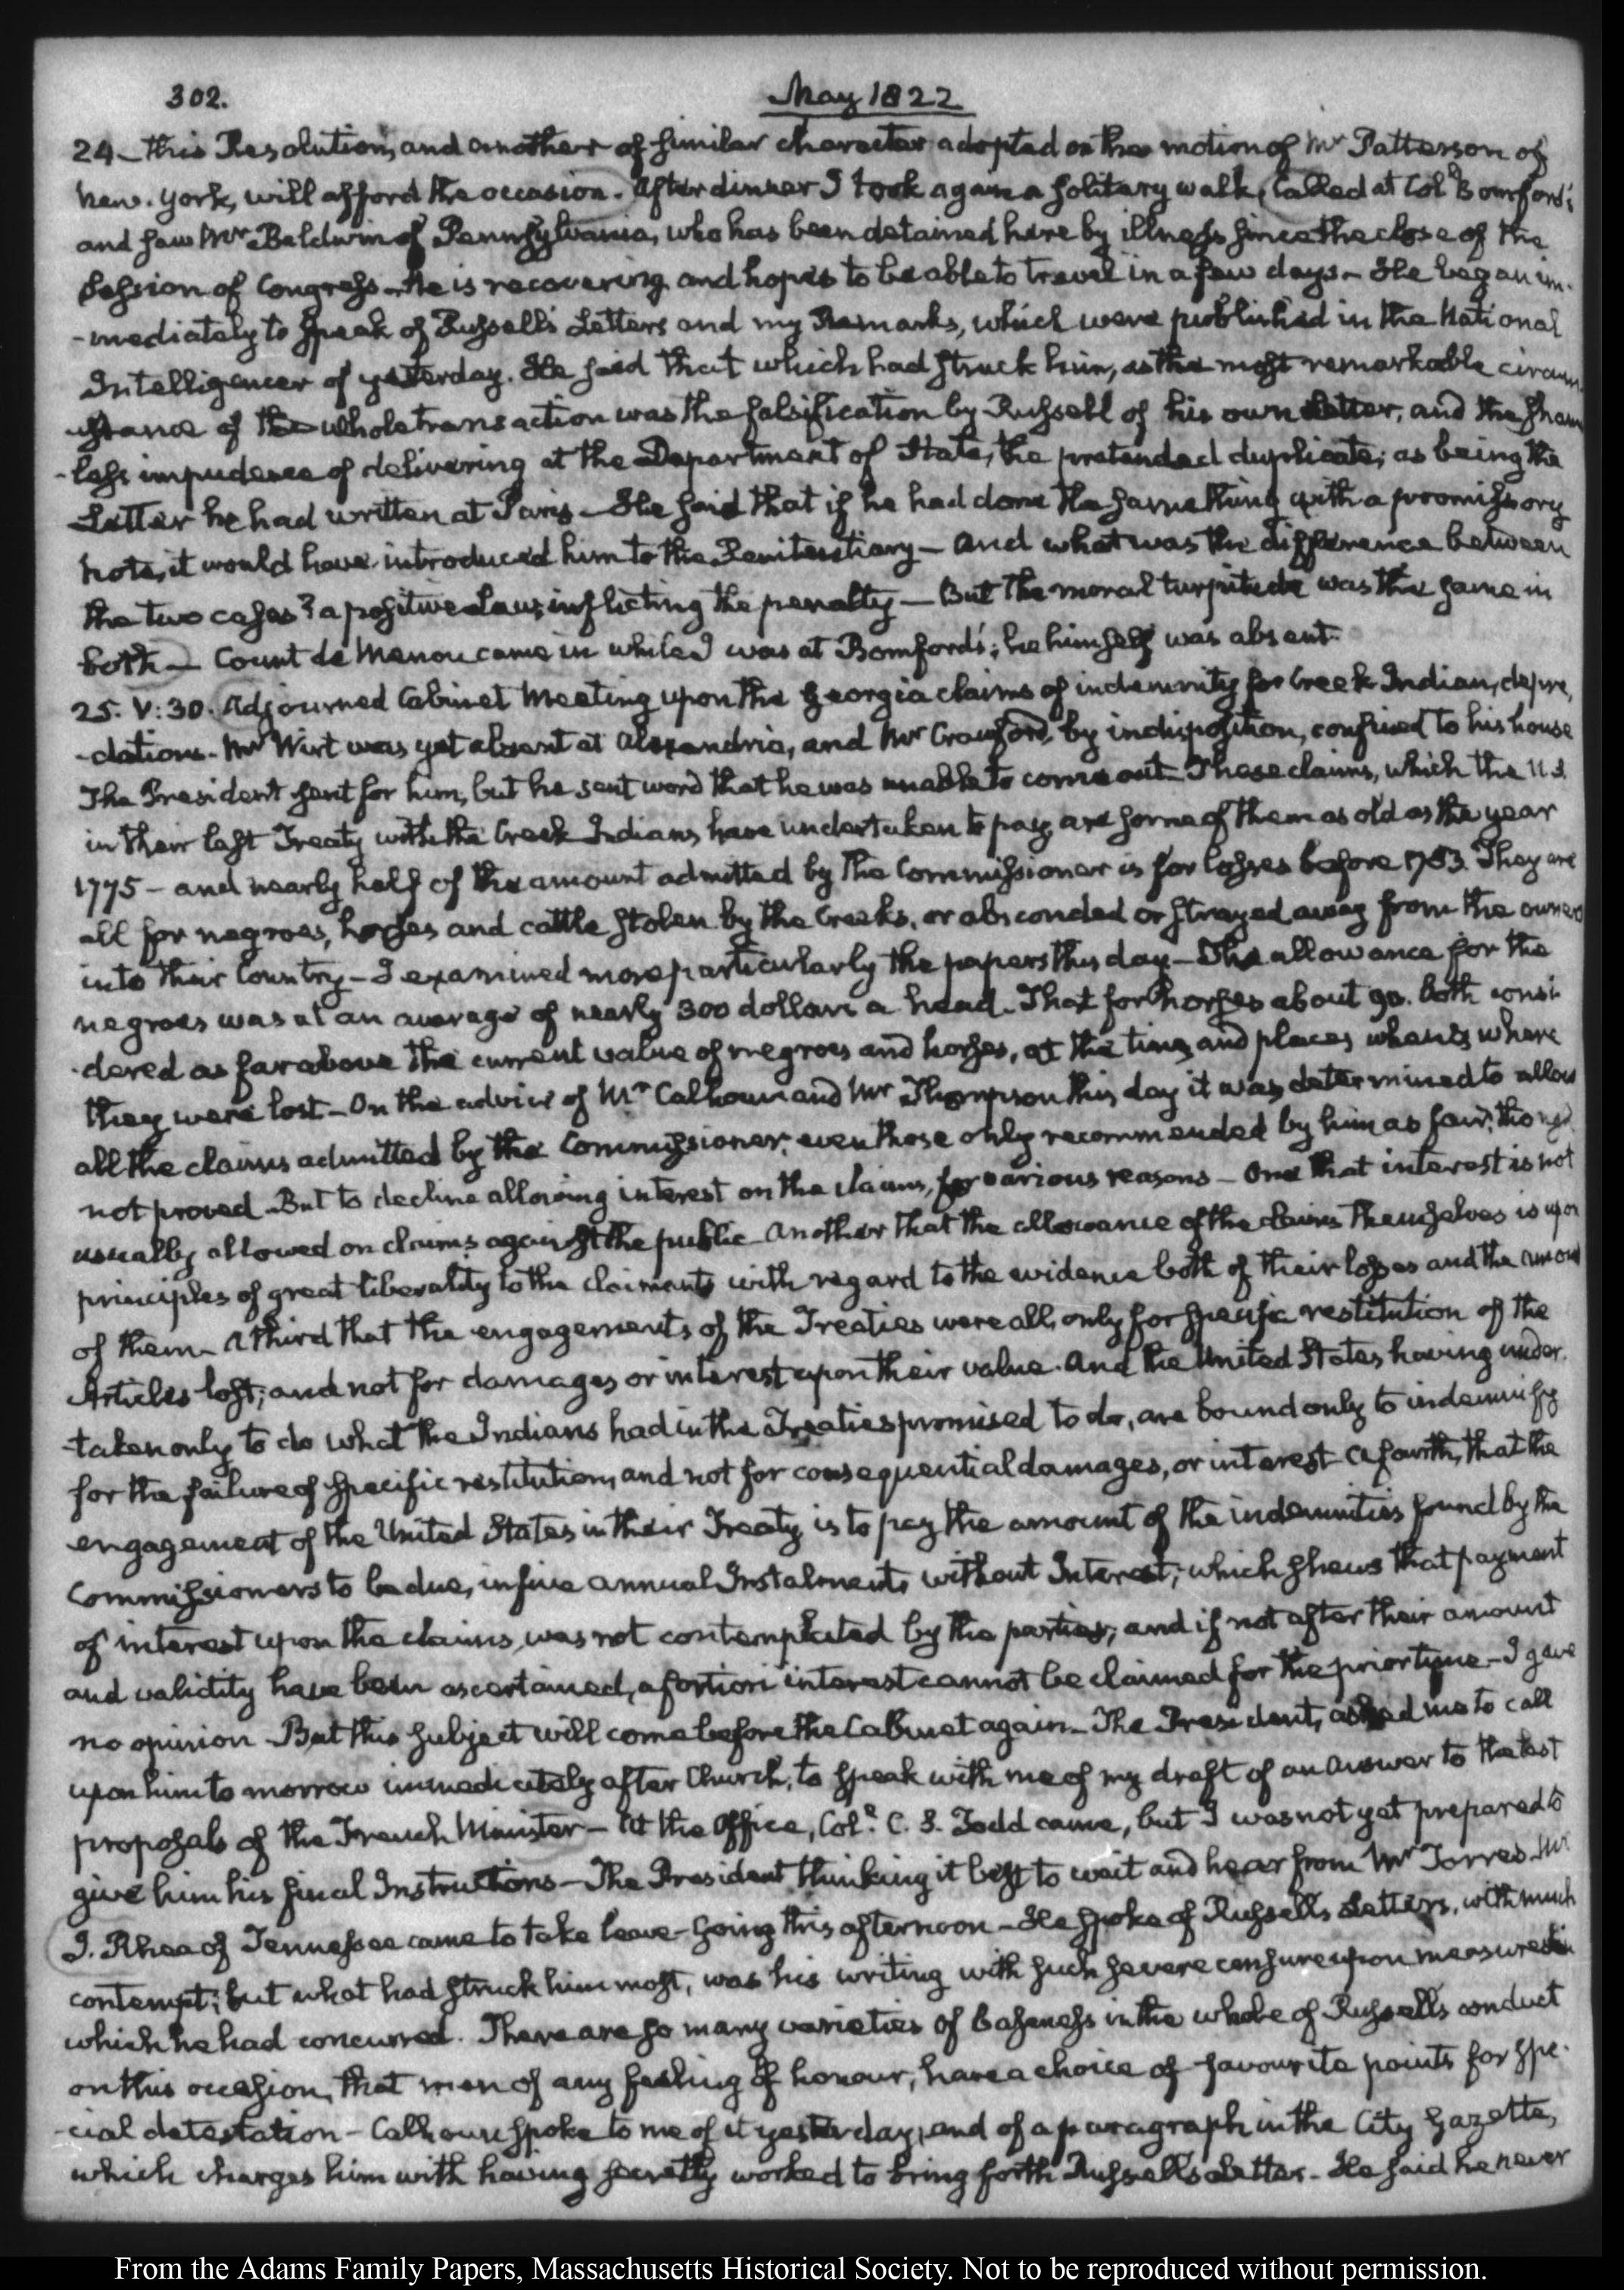 302.
May 1822
24 – this Resolution, and another of similar character adopted on the motion of Mr Patterson of
New-York, will afford the occasion. After dinner I took again a solitary walk, called at Coll Bomford's
and saw Mr Baldwin of Pennsylvania, who has been detained here by illness since the close of the
Session of Congress – He is recovering and hopes to be able to travel in a few days – He began im-
-mediately to speak of Russell's Letters and my Remarks, which were published in the National
Intelligencer of yesterday. He said that which had struck him, as the most remarkable circum
-stance of the whole transaction was the falsification by Russell of his own Letter, and the shame
-less impudence of delivering at the Department of State, the pretended duplicate; as being the
Letter he had written at Paris – He said that if he had done the same thing with a promissory
note, it would have introduced him to the Penitentiary – And what was the difference between
the two cases? a positive Law, inflicting the penalty – But the moral turpitude was the same in
both – Count de Menou came in while I was at Bomford's; he himself was absent.
25. V:30. Adjourned Cabinet Meeting upon the Georgia claims of indemnity for Creek Indian, depre,
-dations – Mr Wirt was yet absent at Alexandria, and Mr Crawford, by indisposition, confined to his house
The President sent for him, but he sent word that he was unable to come out – These claims, which the U.S.
in their last Treaty with the Creek Indians have undertaken to pay are some of them as old as the year
1775 – and nearly half of the amount admitted by the Commissioner is for losses before 1783. They are
all for negroes, horses and cattle stolen by the Creeks, or absconded or strayed away from the owners
into their Country – I examined more particularly the papers this day – The allowance for the
negroes was at an average of nearly 300 dollars a head. That for horses about 90. Both consi-
-dered as far above the current value of negroes and horses, at the times and places when & where
they were lost – On the advice of Mr Calhoun and Mr Thompson this day it was determined to allow
all the claims admitted by the Commissioner; even those only recommended by him as fair; though
not proved – But to decline allowing interest on the claims, for various reasons – One that interest is not
usually allowed on claims against the public – Another that the allowance of the claims themselves is upon
principles of great liberality to the claimants with regard to the evidence both of their losses and the amount
of them – A third that the engagements of the Treaties were all, only for specific restitution of the
Articles lost; and not for damages or interest upon their value. And the United States having under-
-taken only to do what the Indians had in the Treaties promised to do, are bound only to indemnify
for the failure of specific restitution, and not for consequential damages, or interest – A fourth, that the
engagement of the United States in their Treaty is to pay the amount of the indemnities found by the
Commissioners to be due, in five annual Instalments without Interest; which shews that payment
of interest upon the claims, was not contemplated by the parties; and if not after their amount
and validity have been ascertained, a fortiori interest cannot be claimed for the prior time – I gave
no opinion – But this subject will come before the Cabinet again – The President, asked me to call
upon him to morrow immediately after Church, to speak with me of my draft of an Answer to the last
proposals of the French Minister – At the Office, Coll C. S. Todd came, but I was not yet prepared to
give him his final Instructions – The President thinking it best to wait and hear from Mr Torres – Mr
J. Rhea of Tennessee came to take leave – Going this afternoon – He spoke of Russell's Letters, with much
contempt; but what had struck him most, was his writing with such severe censure upon measures in
which he had concurred. There are so many varieties of baseness in the whole of Russell's conduct
on this occasion, that men of any feeling of honour, have a choice of favourite points for spe-
-cial detestation – Calhoun spoke to me of it yesterday, and of a paragraph in the City Gazette,
which charges him with having secretly worked to bring forth Russell's Letter – He said he never
From the Adams Family Papers, Massachusetts Historical Society. Not to be reproduced without permission.